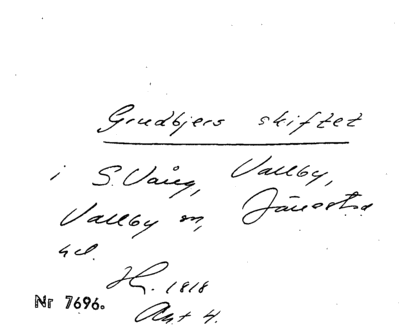 Grudbjers skiftet
i S. Vång, Vallby,
Vallby sn, Järrestad
hd.
1818
Akt 4.
Nr 7696.